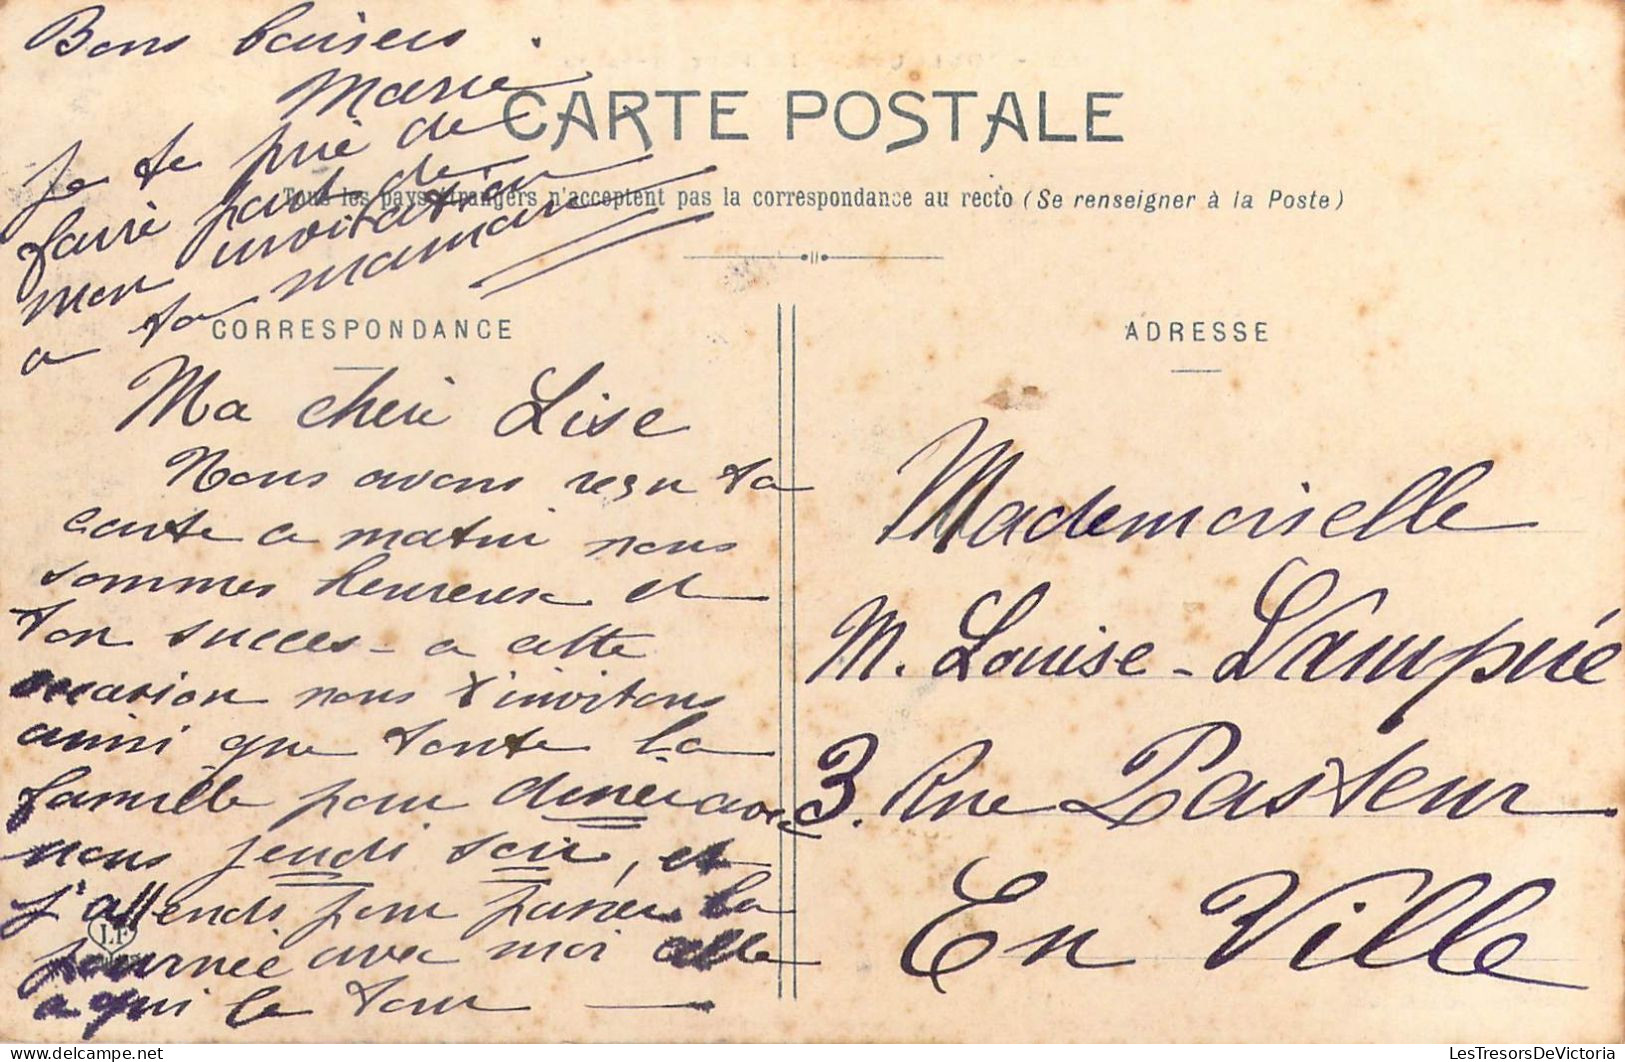 Bons baisers.
Marie
Je te prie de
faire part de
mon invitation
a ta maman
CARTE POSTALE
Tous les pays étrangers n'acceptent pas la correspondance au recto (Se renseigner à la Poste)
CORRESPONDANCE
Ma cheri Lise
Nous avons reçu ta
carte a matin nous
sommes heureuse et
ton succes - a cette
occasion nous t'invitons
ainsi que toute la
famille pour diner avec
nous jeudi soir, et
j'attends pour passer la
journée avec moi alle
a qui le tour
LF
ADRESSE
Mademoiselle
M. Louise - Lampué
3. Rue Pasteur
En Ville
LesTresorsDeVictoria